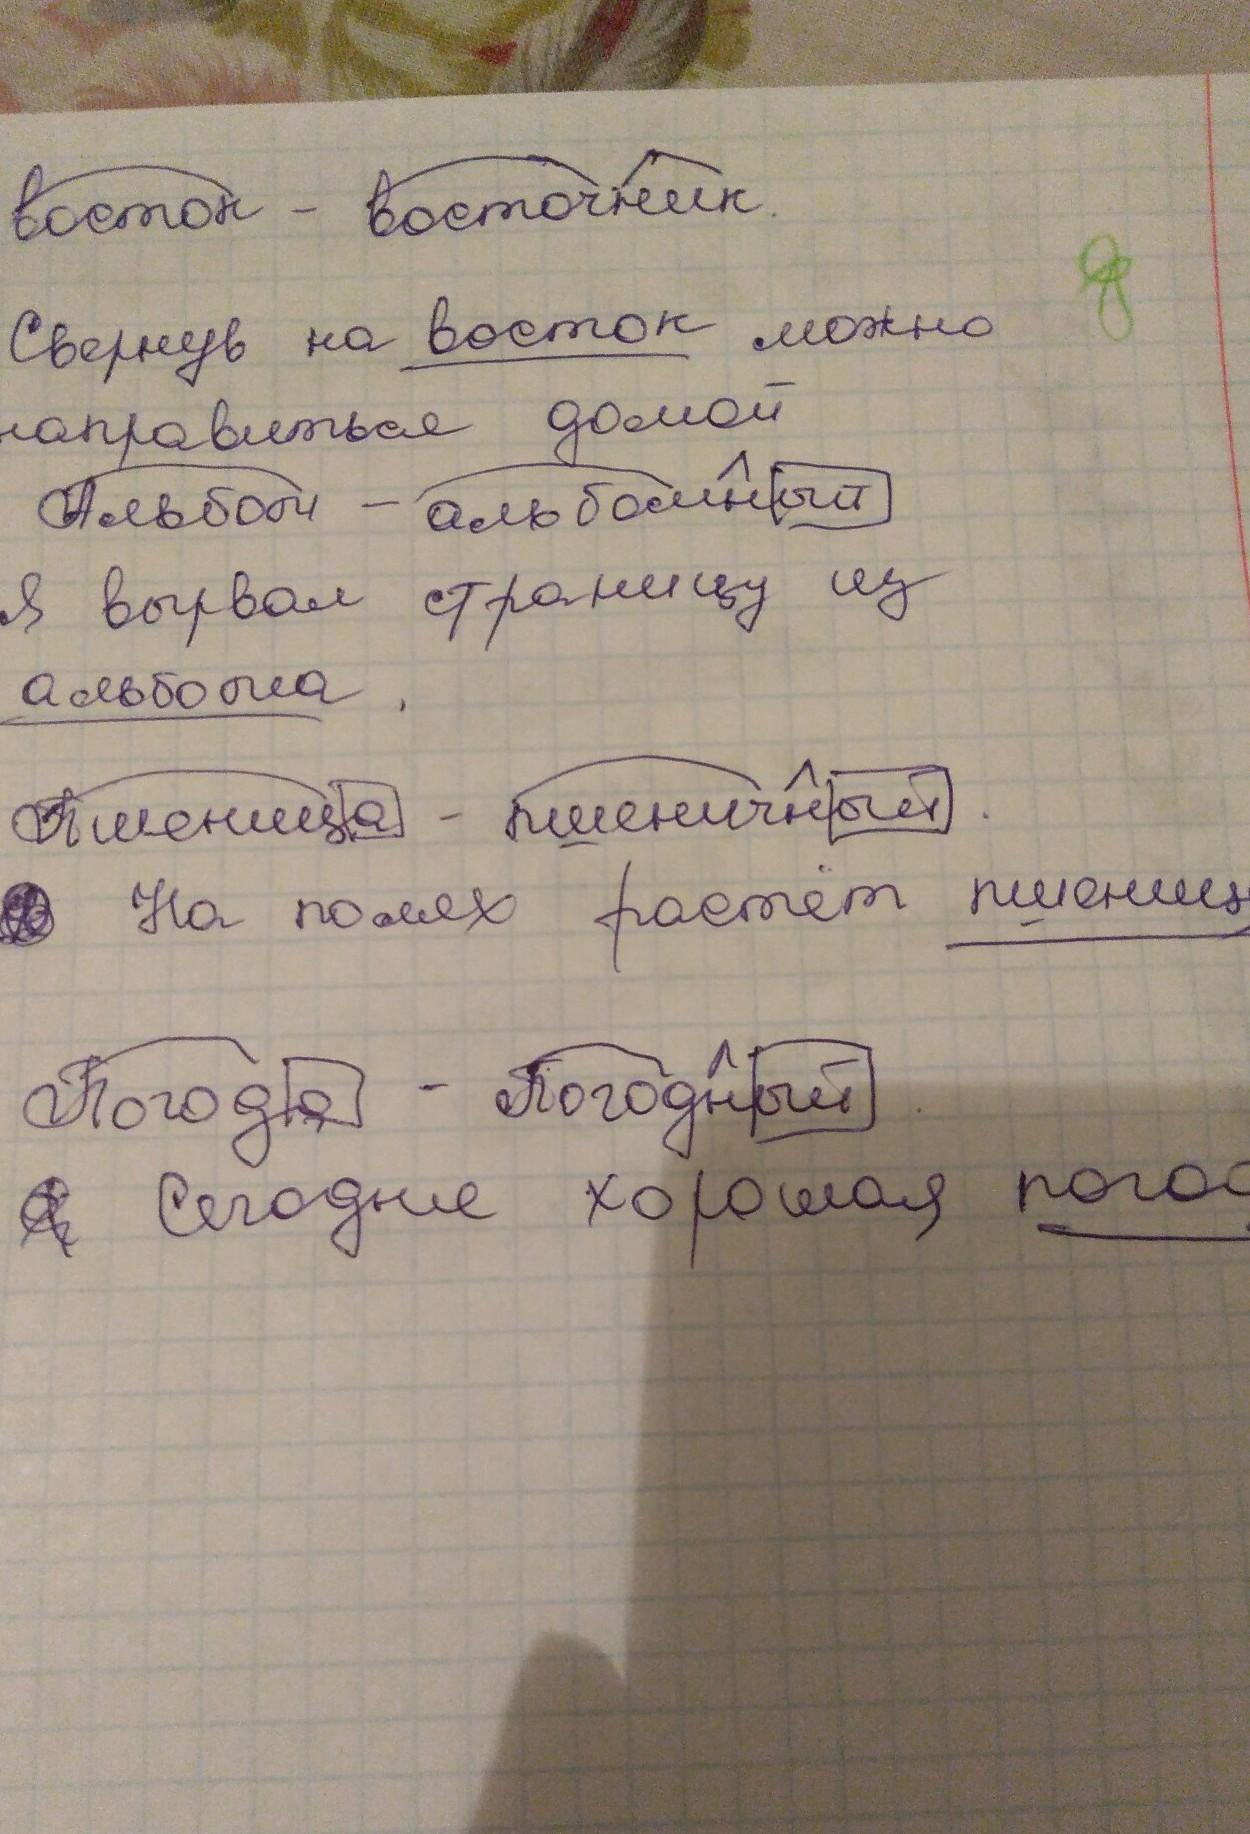 восток - восточник.
Свернув на восток можно
направиться домой
Альбом - альбомный
Я вырвал страницу из
альбома.
Пшеница - пшеничный.
На полях растёт пшениц
Погода - Погодный.
Сегодня хорошая погод